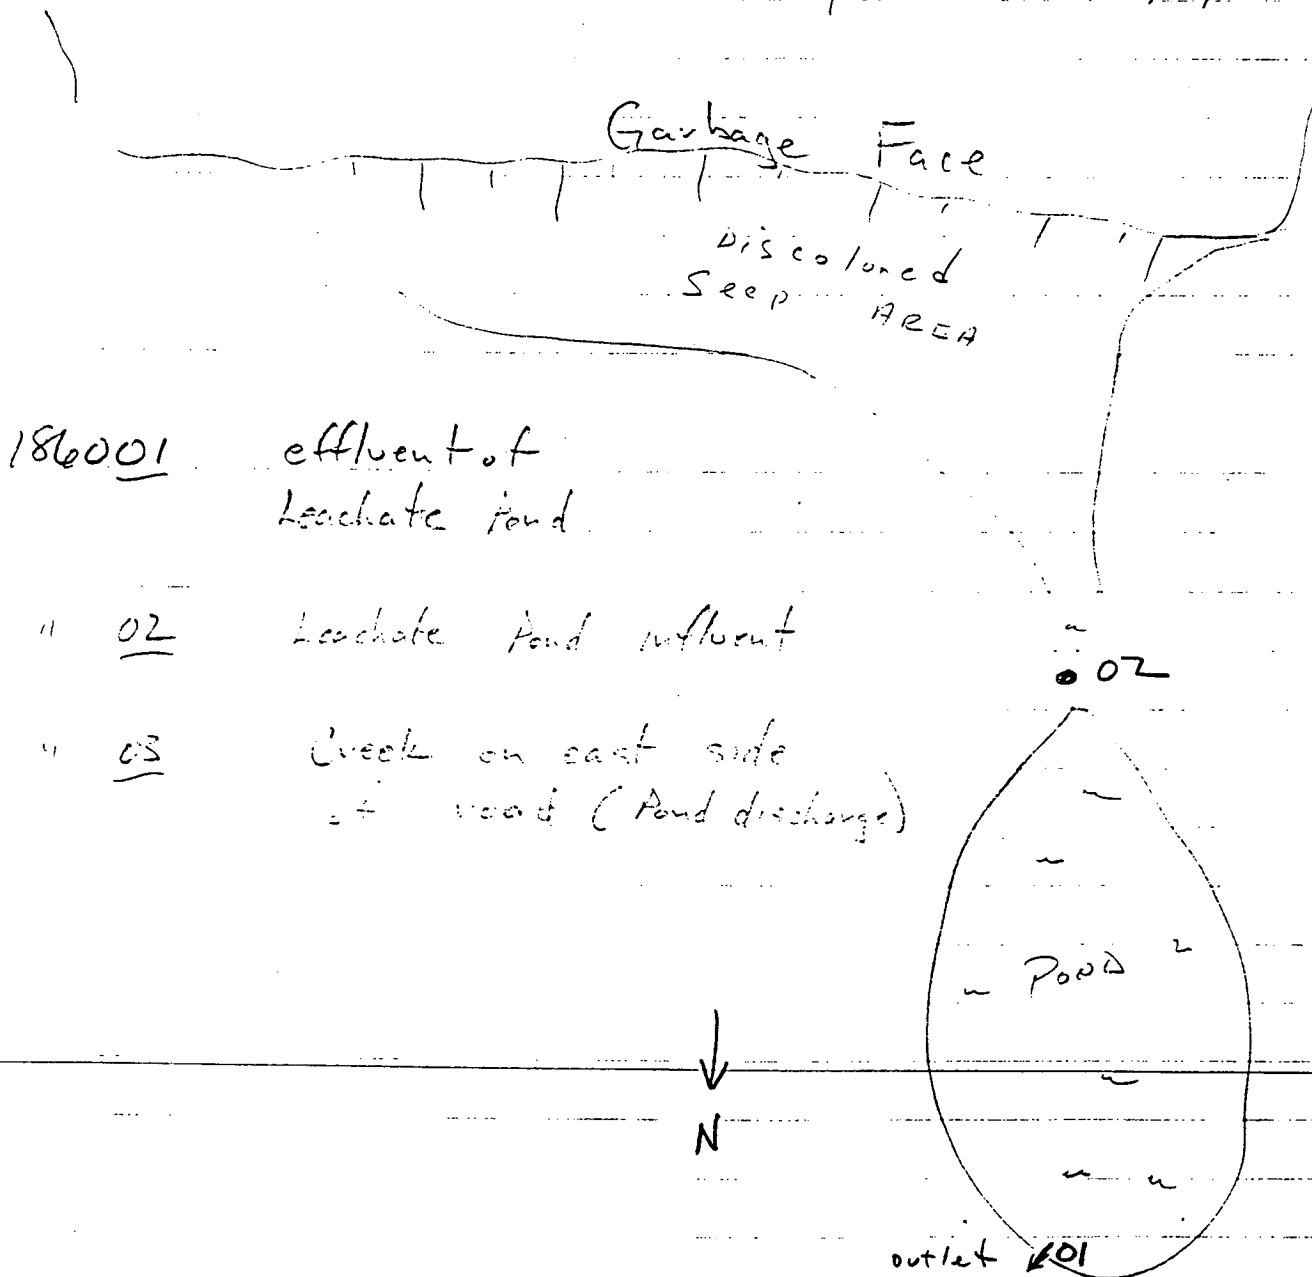 Garbage Face
Discolored
Seep AREA
186001 effluent of
Leachate Pond
" 02 Leachate Pond influent
• 02
" 03 Creek on east side
of road (Pond discharge)
POND
N
outlet 01